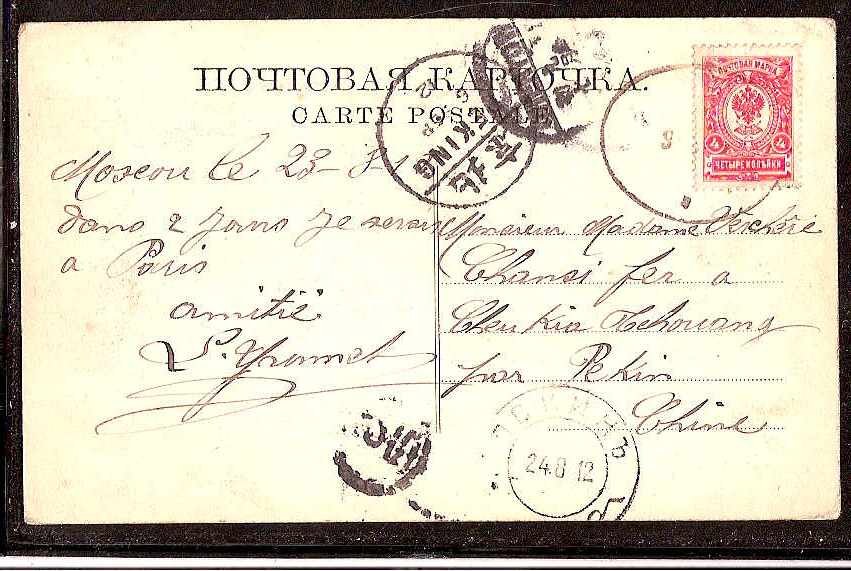 ПОЧТОВАЯ КАРТОЧКА.
CARTE POSTALE
ПОЧТОВАЯ МАРКА
4 4
ЧЕТЫРЕ КОПѢЙКИ
PEKING
北京
Moscou le 23-8-1
dans 2 Jours Je serais
a Paris
amitié
Monsieur Madame
Chansi fer a
Cheu Kia Tchouang
par Pekin
Chine
24.8 12